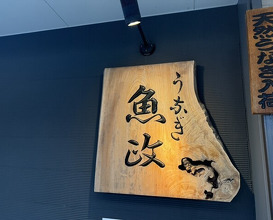 うなぎ
魚政
天然うなぎ